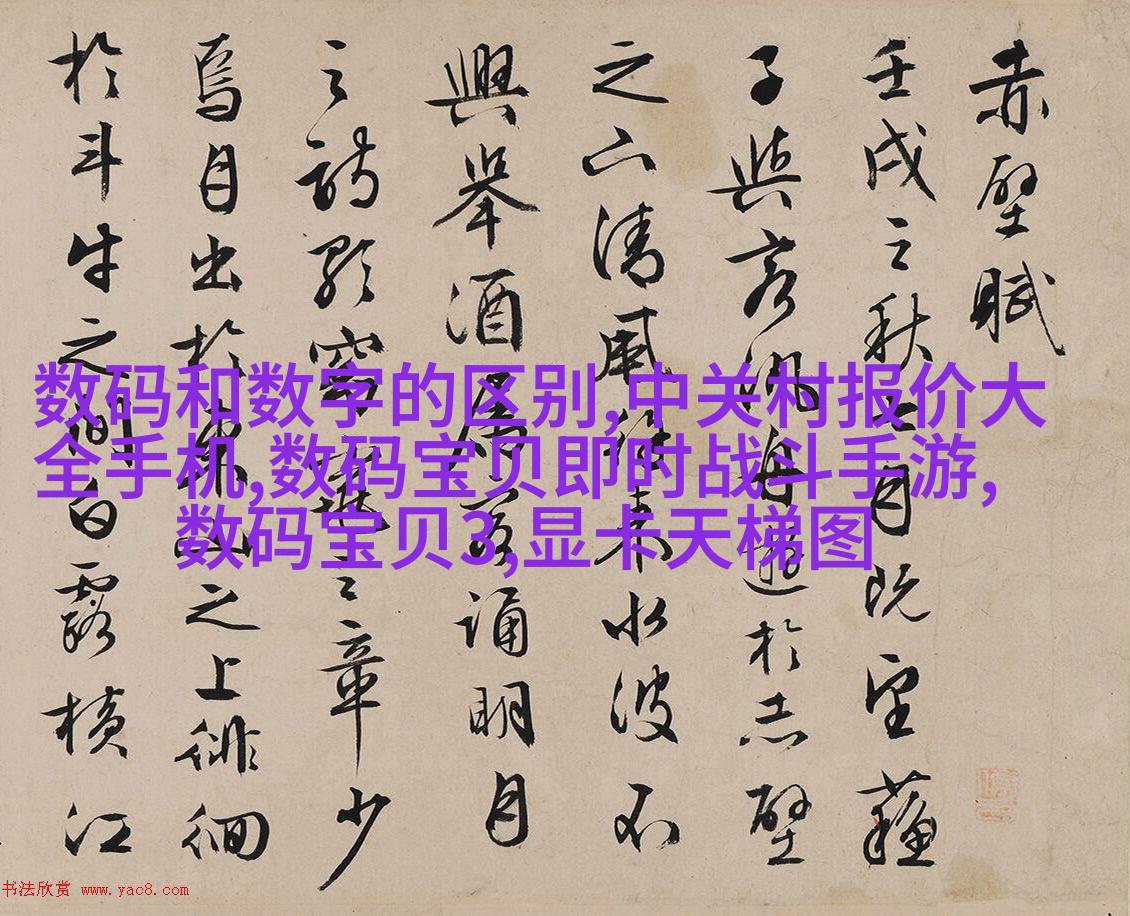 赤壁賦
壬戌之秋七月既望蘇
子與客泛舟遊於赤壁
之下清風徐来水波不
興舉酒屬客誦明月
之詩歌窈窕之章少
焉月出於東山之上徘徊
於斗牛之間白露橫江
数码和数字的区别,中关村报价大
全手机,数码宝贝即时战斗手游,
数码宝贝3,显卡天梯图
书法欣赏 www.yac8.com